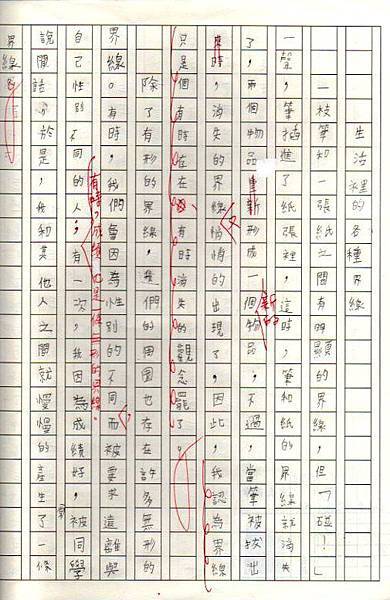 生活裡的各種界線
一枝筆和一張紙之間有明顯的界線,但「碰!」
一聲,筆插進了紙張裡,這時,筆和紙的界線就消失
了,而個物品重新形成一個物品,不過,當筆被拔出
新的
來時,消失的界線悄悄的出現了,因此,我認為界線
只是個有時在,有時消失的觀念罷了。
除了有形的界線,我們的周圍也存在許多無形的
界線。有時,我們會因為性別的不同而被要求遠離與
有時,成績也是一條無形的界線。
自己性別不同的人;有一次,我因為成績好被同學
說閒話,於是,我和其他人之間就慢慢的產生了一條
界線